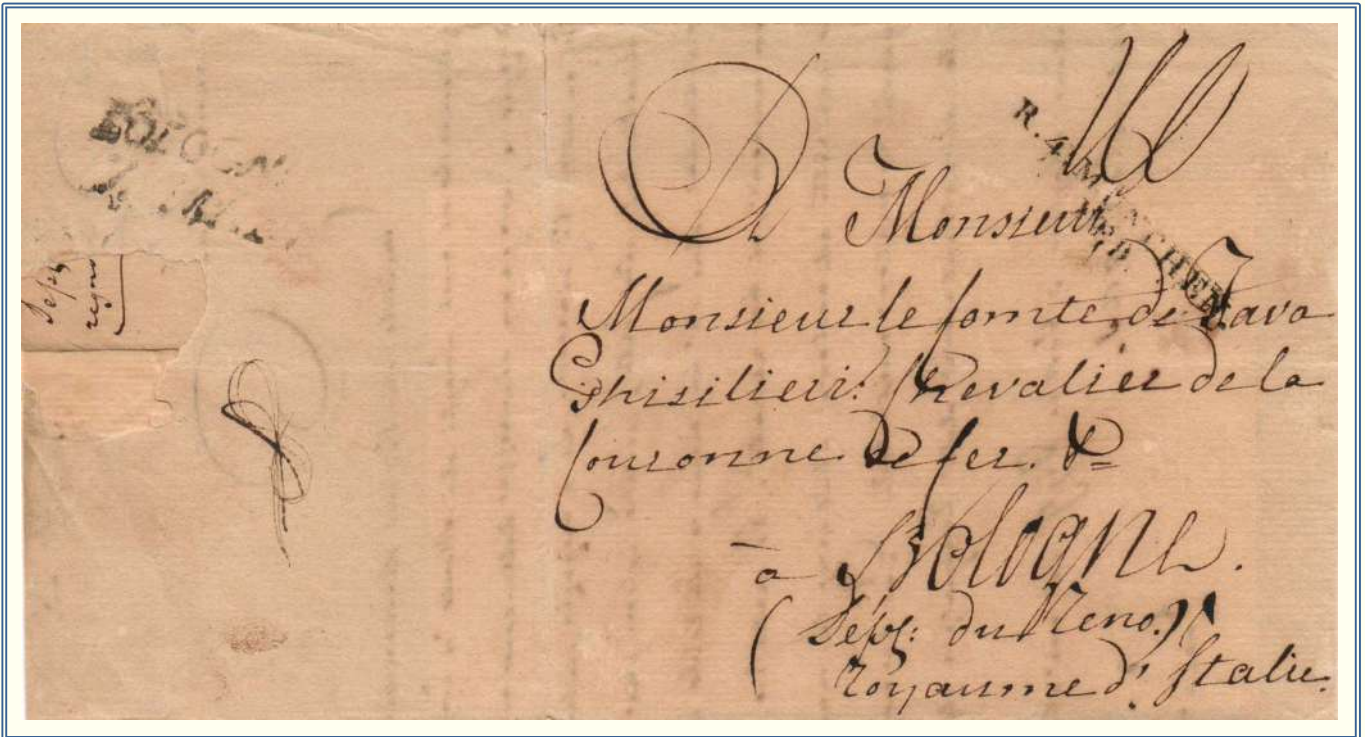 BOLOGNA
R. 4. MÜNCHEN
A Monsieur
Monsieur le Comte de Cava
Ghisilieri. Chevalier de la
Couronne de fer. &
à Bologne.
(Dépt: du Reno.)
Royaume d'Italie.